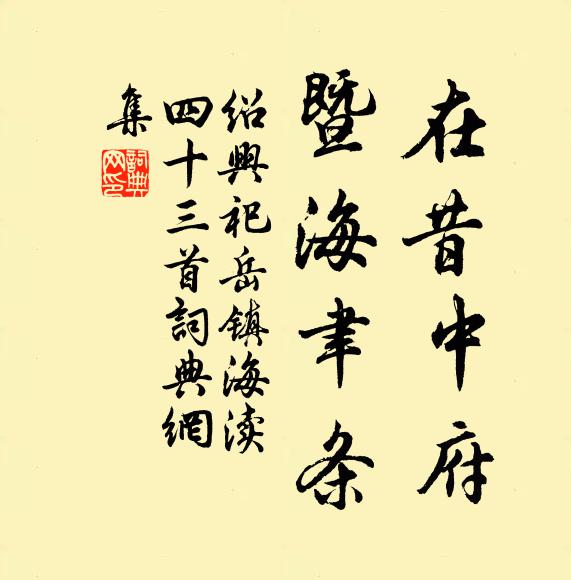 在昔中府
暨海聿条
绍興祀岳镇海渎
四十三首詞典網
集
詞典網印